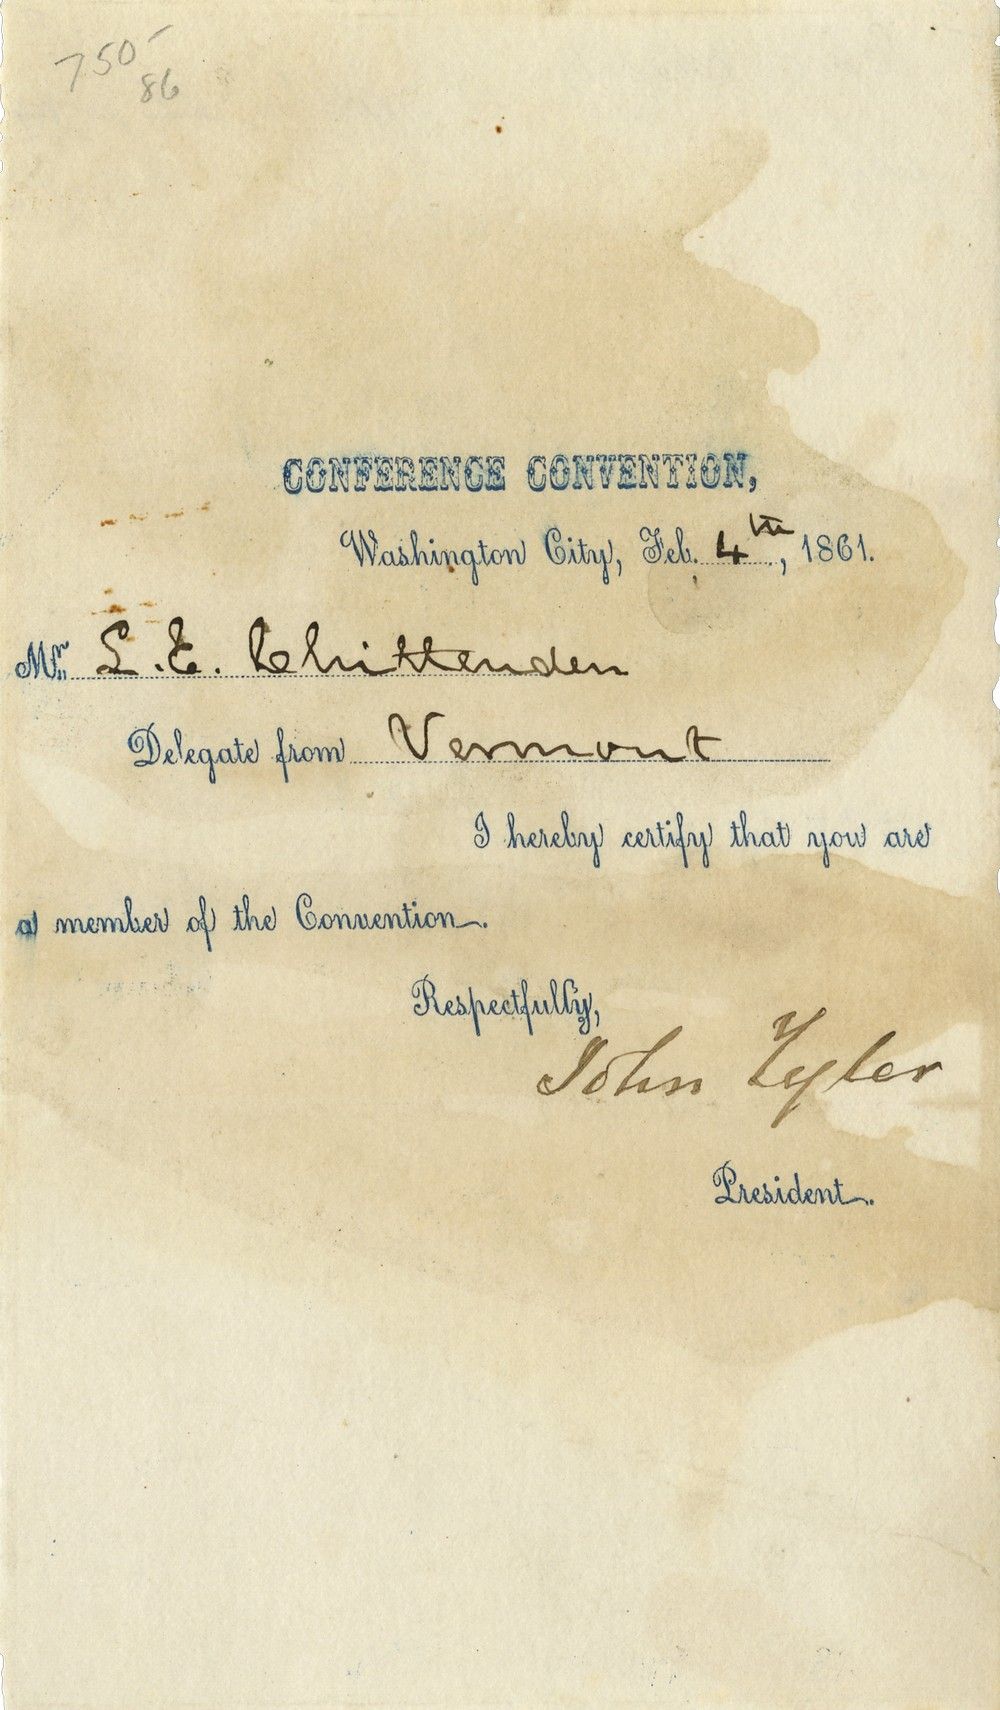 750-
86
CONFERENCE CONVENTION,
Washington City, Feb. 4th, 1861.
Mr. L. E. Chittenden
Delegate from Vermont
I hereby certify that you are
a member of the Convention.
Respectfully,
John Tyler
President.